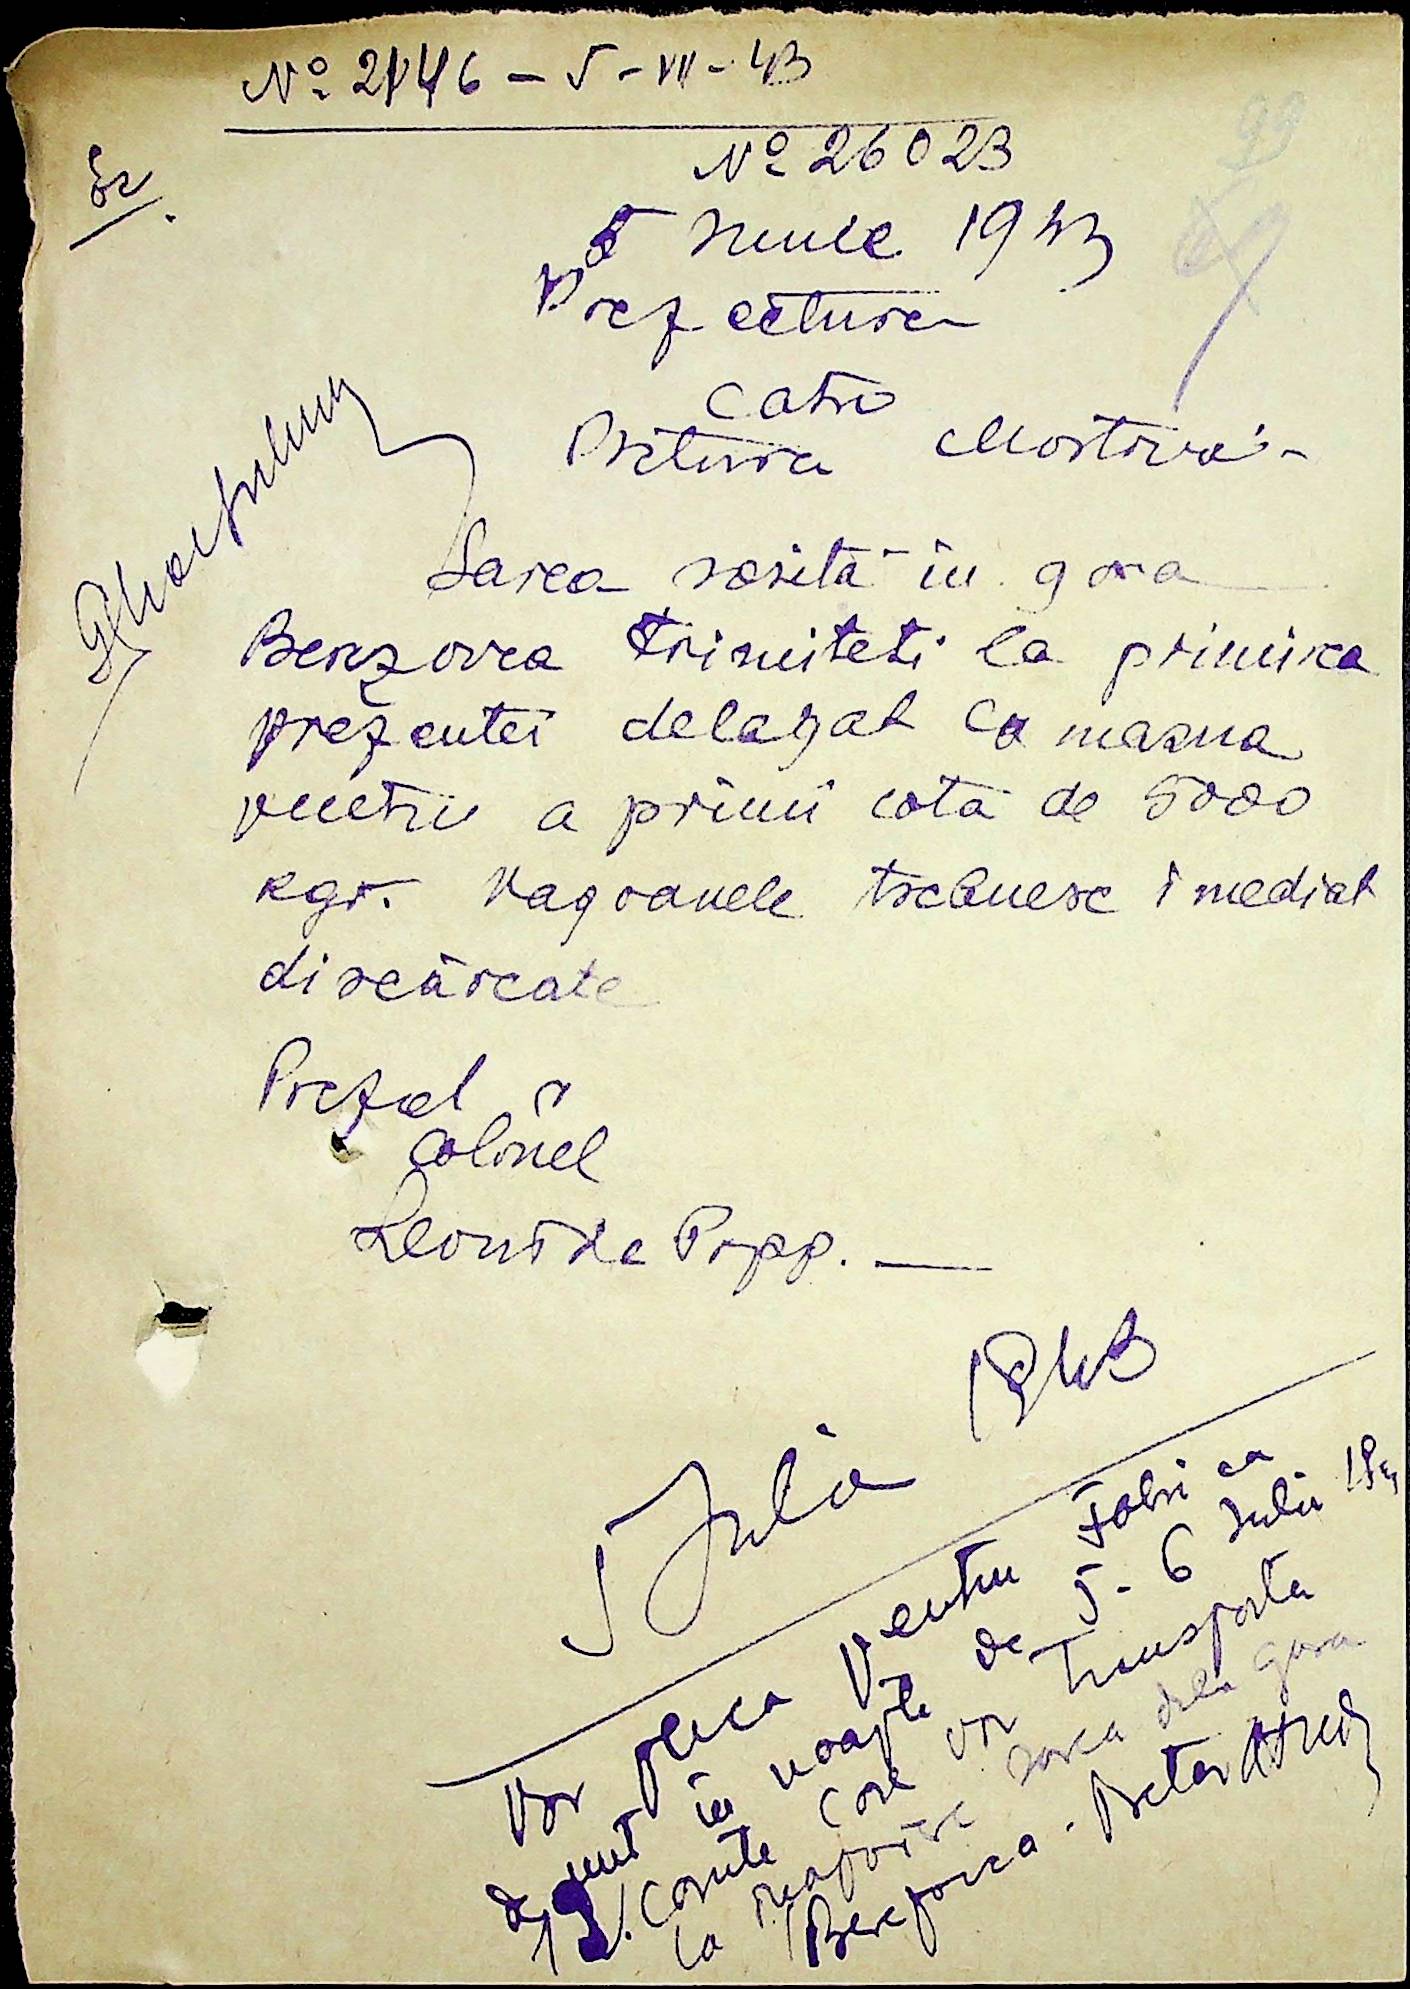 No 2146 - 5 - VII - 43
No 26023
5 Iunie 1943
Prefectura
catre
Pretura Mostovoi -
Sarea sosită in gara
Berezovca trimiteti la primirea
prezentei delagat cu masina
pentru a primi cota de 5000
kgr. Vagoanele trebuesc imediat
discărcate
Prefect
Colonel
Leonida Popp. —
5 Iulie 1943
Vor pleca pentru Fabrica
de unt in noapte de 5 - 6 Iulie 194
care vor transporta
la inapoiere sarea dela gara
Berezovca. Pretor